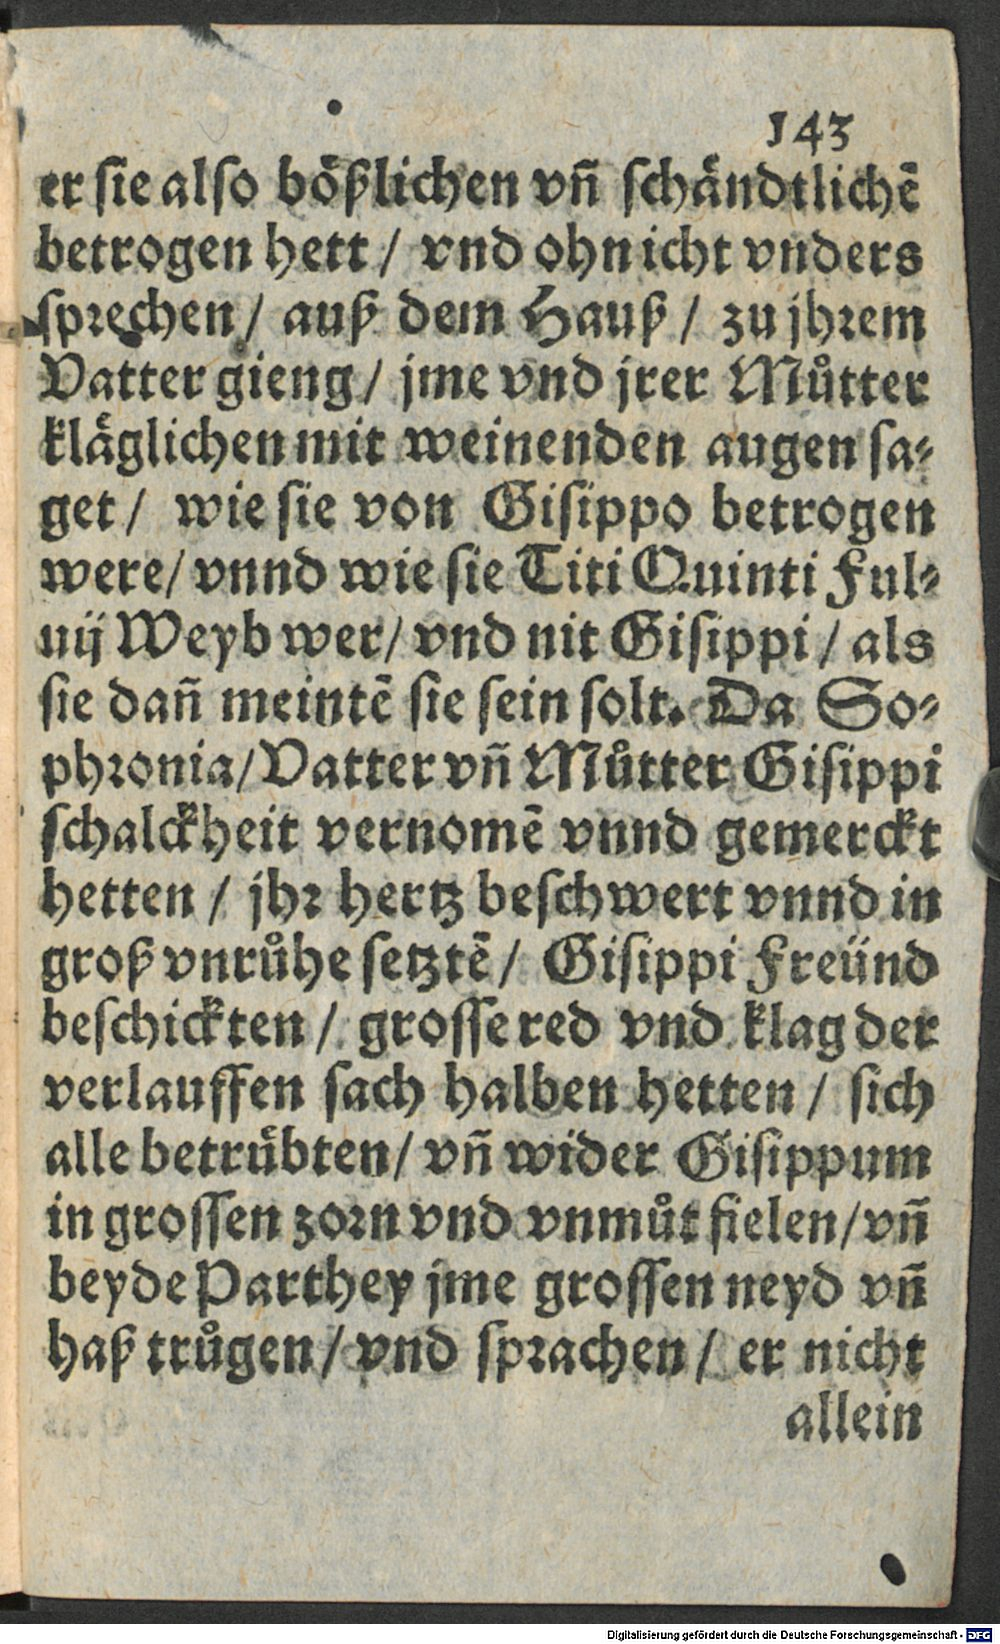 143
er sie also bößlichen vñ schändtlichē
betrogen hett / vnd ohn icht vnders
sprechen / auß dem Hauß / zu jhrem
Vatter gieng / jme vnd jrer Můtter
kläglichen mit weinenden augen sa-
get / wie sie von Gisippo betrogen
were / vnnd wie sie Titi Quinti Ful-
uij Weyb wer / vnd nit Gisippi / als
sie dañ meintē sie sein solt. Da So-
phronia / Vatter vñ Můtter Gisippi
schalckheit vernomē vnnd gemerckt
hetten / jhr hertz beschwert vnnd in
groß vnrůhe setztē / Gisippi Freünd
beschickten / grosse red vnd klag der
verlauffen sach halben hetten / sich
alle betrübten / vñ wider Gisippum
in grossen zorn vnd vnmůt fielen / vñ
beyde Parthey jme grossen neyd vñ
haß trůgen / vnd sprachen / er nicht
allein
Digitalisierung gefördert durch die Deutsche Forschungsgemeinschaft - DFG